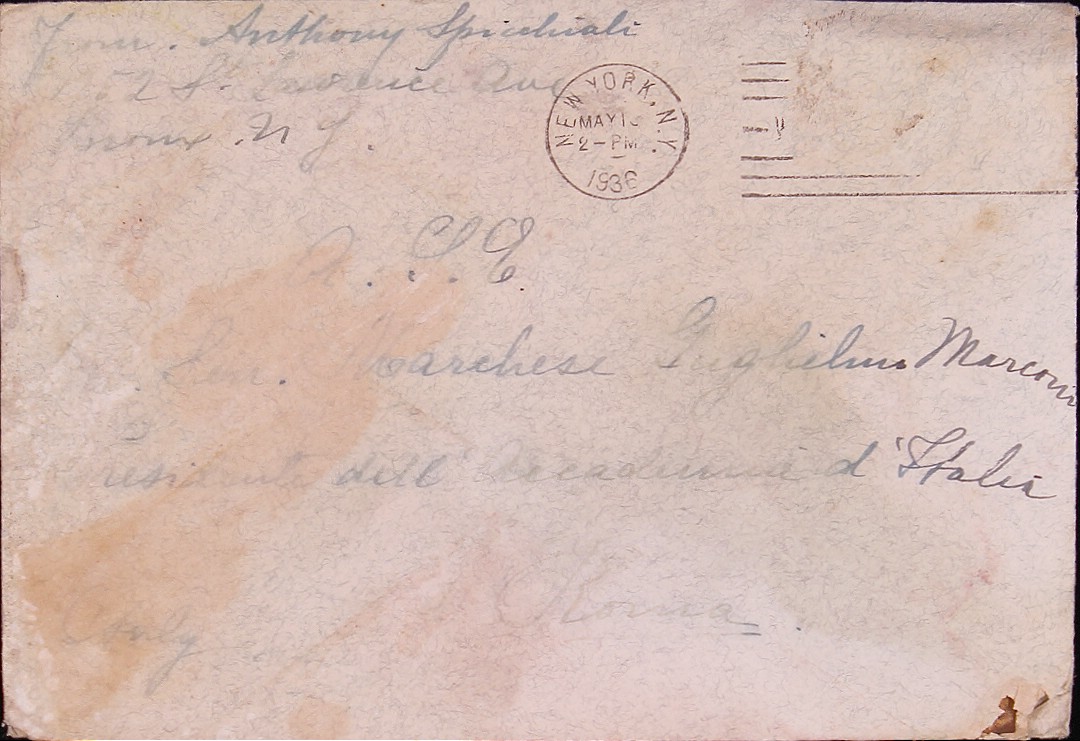 From. Anthony Spicchiali
52 St. Lawrence Ave
Bronx. N Y.
NEW YORK, N.Y.
MAY 1
2-PM
1936
A. S. E.
Sen. Marchese Gughilmo Marconi
President dell' Accademia d'Italia
Roma.
Italy